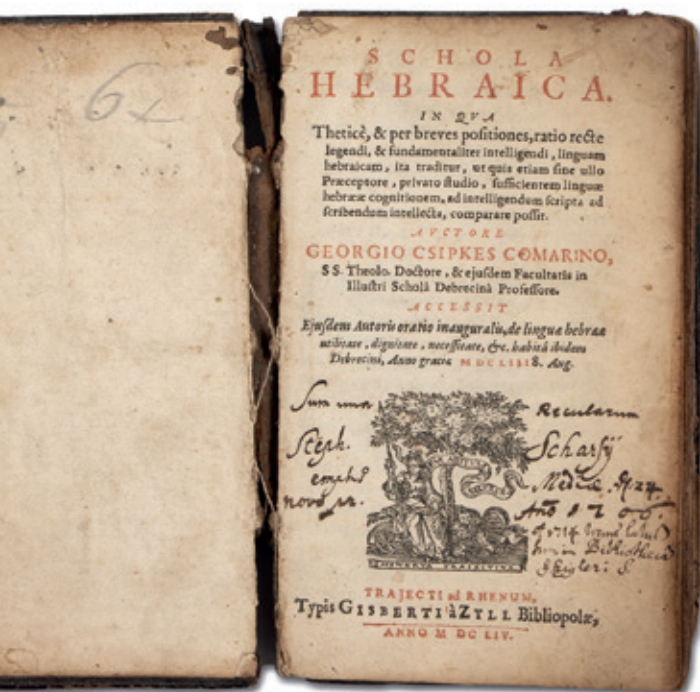 6
SCHOLA
HEBRAICA.
IN QVA
Theticè, & per breves positiones, ratio recte
legendi, & fundamentaliter intelligendi, linguam
hebraicam, ita traditur, ut quis etiam sine ullo
Præceptore, privato studio, sufficientem linguæ
hebrææ cognitionem, ad intelligendum scripta ad
scribendum intellecta, comparare possit.
AVCTORE
GEORGIO CSIPKES COMARINO,
SS. Theolo. Doctore, & ejusdem Facultatis in
Illustri Scholâ Debrecinâ Professore.
ACCESSIT
Ejusdem Autoris oratio inauguralis, de linguæ hebrææ
utilitate, dignitate, necessitate, &c. habitâ ibidem
Debrecini, Anno gratiæ MDCLIII 8. Aug.
Sum unus Recularum
Steph. Scharsÿ
Mediæ 24
novo Año 1706
Bibliotheca
MINERVA TRAJECTINA
TRAJECTI ad RHENUM,
Typis GISBERTI à ZYLL Bibliopolæ,
ANNO M DC LIV.